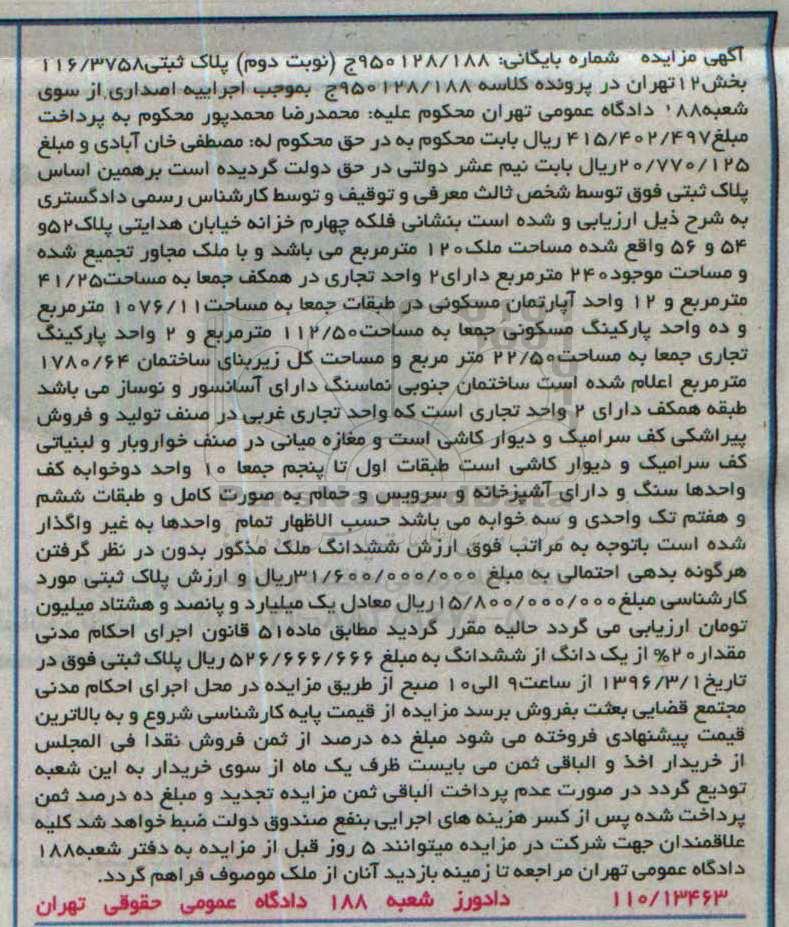 آگهی مزایده شماره بایگانی: ۹۵۰۱۲۸/۱۸۸ج (نوبت دوم) پلاک ثبتی۱۱۶/۳۷۵۸
بخش۱۲تهران در پرونده کلاسه ۹۵۰۱۲۸/۱۸۸ج بموجب اجراییه اصداری از سوی
شعبه۱۸۸ دادگاه عمومی تهران محکوم علیه: محمدرضا محمدپور محکوم به پرداخت
مبلغ۴۱۵/۴۰۲/۴۹۷ ریال بابت محکوم به در حق محکوم له: مصطفی خان آبادی و مبلغ
۲۰/۷۷۰/۱۲۵ریال بابت نیم عشر دولتی در حق دولت گردیده است برهمین اساس
پلاک ثبتی فوق توسط شخص ثالث معرفی و توقیف و توسط کارشناس رسمی دادگستری
به شرح ذیل ارزیابی و شده است بنشانی فلکه چهارم خزانه خیابان هدایتی پلاک۵۲و
۵۴ و ۵۶ واقع شده مساحت ملک۱۲۰ مترمربع می باشد و با ملک مجاور تجمیع شده
و مساحت موجود۲۴۰ مترمربع دارای۲ واحد تجاری در همکف جمعا به مساحت۴۱/۲۵
مترمربع و ۱۲ واحد آپارتمان مسکونی در طبقات جمعا به مساحت۱۰۷۶/۱۱ مترمربع
و ده واحد پارکینگ مسکونی جمعا به مساحت۱۱۲/۵۰ مترمربع و ۲ واحد پارکینگ
تجاری جمعا به مساحت۲۲/۵۰ متر مربع و مساحت کل زیربنای ساختمان ۱۷۸۰/۶۴
مترمربع اعلام شده است ساختمان جنوبی نماسنگ دارای آسانسور و نوساز می باشد
طبقه همکف دارای ۲ واحد تجاری است که واحد تجاری غربی در صنف تولید و فروش
پیراشکی کف سرامیک و دیوار کاشی است و مغازه میانی در صنف خواروبار و لبنیاتی
کف سرامیک و دیوار کاشی است طبقات اول تا پنجم جمعا ۱۰ واحد دوخوابه کف
واحدها سنگ و دارای آشپزخانه و سرویس و حمام به صورت کامل و طبقات ششم
و هفتم تک واحدی و سه خوابه می باشد حسب الاظهار تمام واحدها به غیر واگذار
شده است باتوجه به مراتب فوق ارزش ششدانگ ملک مذکور بدون در نظر گرفتن
هرگونه بدهی احتمالی به مبلغ ۳۱/۶۰۰/۰۰۰/۰۰۰ریال و ارزش پلاک ثبتی مورد
کارشناسی مبلغ۱۵/۸۰۰/۰۰۰/۰۰۰ریال معادل یک میلیارد و پانصد و هشتاد میلیون
تومان ارزیابی می گردد حالیه مقرر گردید مطابق ماده۵۱ قانون اجرای احکام مدنی
مقدار۲۰% از یک دانگ از ششدانگ به مبلغ ۵۲۶/۶۶۶/۶۶۶ ریال پلاک ثبتی فوق در
تاریخ۱۳۹۶/۳/۱ از ساعت۹ الی۱۰ صبح از طریق مزایده در محل اجرای احکام مدنی
مجتمع قضایی بعثت بفروش برسد مزایده از قیمت پایه کارشناسی شروع و به بالاترین
قیمت پیشنهادی فروخته می شود مبلغ ده درصد از ثمن فروش نقدا فی المجلس
از خریدار اخذ و الباقی ثمن می بایست ظرف یک ماه از سوی خریدار به این شعبه
تودیع گردد در صورت عدم پرداخت الباقی ثمن مزایده تجدید و مبلغ ده درصد ثمن
پرداخت شده پس از کسر هزینه های اجرایی بنفع صندوق دولت ضبط خواهد شد کلیه
علاقمندان جهت شرکت در مزایده میتوانند ۵ روز قبل از مزایده به دفتر شعبه۱۸۸
دادگاه عمومی تهران مراجعه تا زمینه بازدید آنان از ملک موصوف فراهم گردد.
۱۱۰/۱۳۴۶۳ دادورز شعبه ۱۸۸ دادگاه عمومی حقوقی تهران